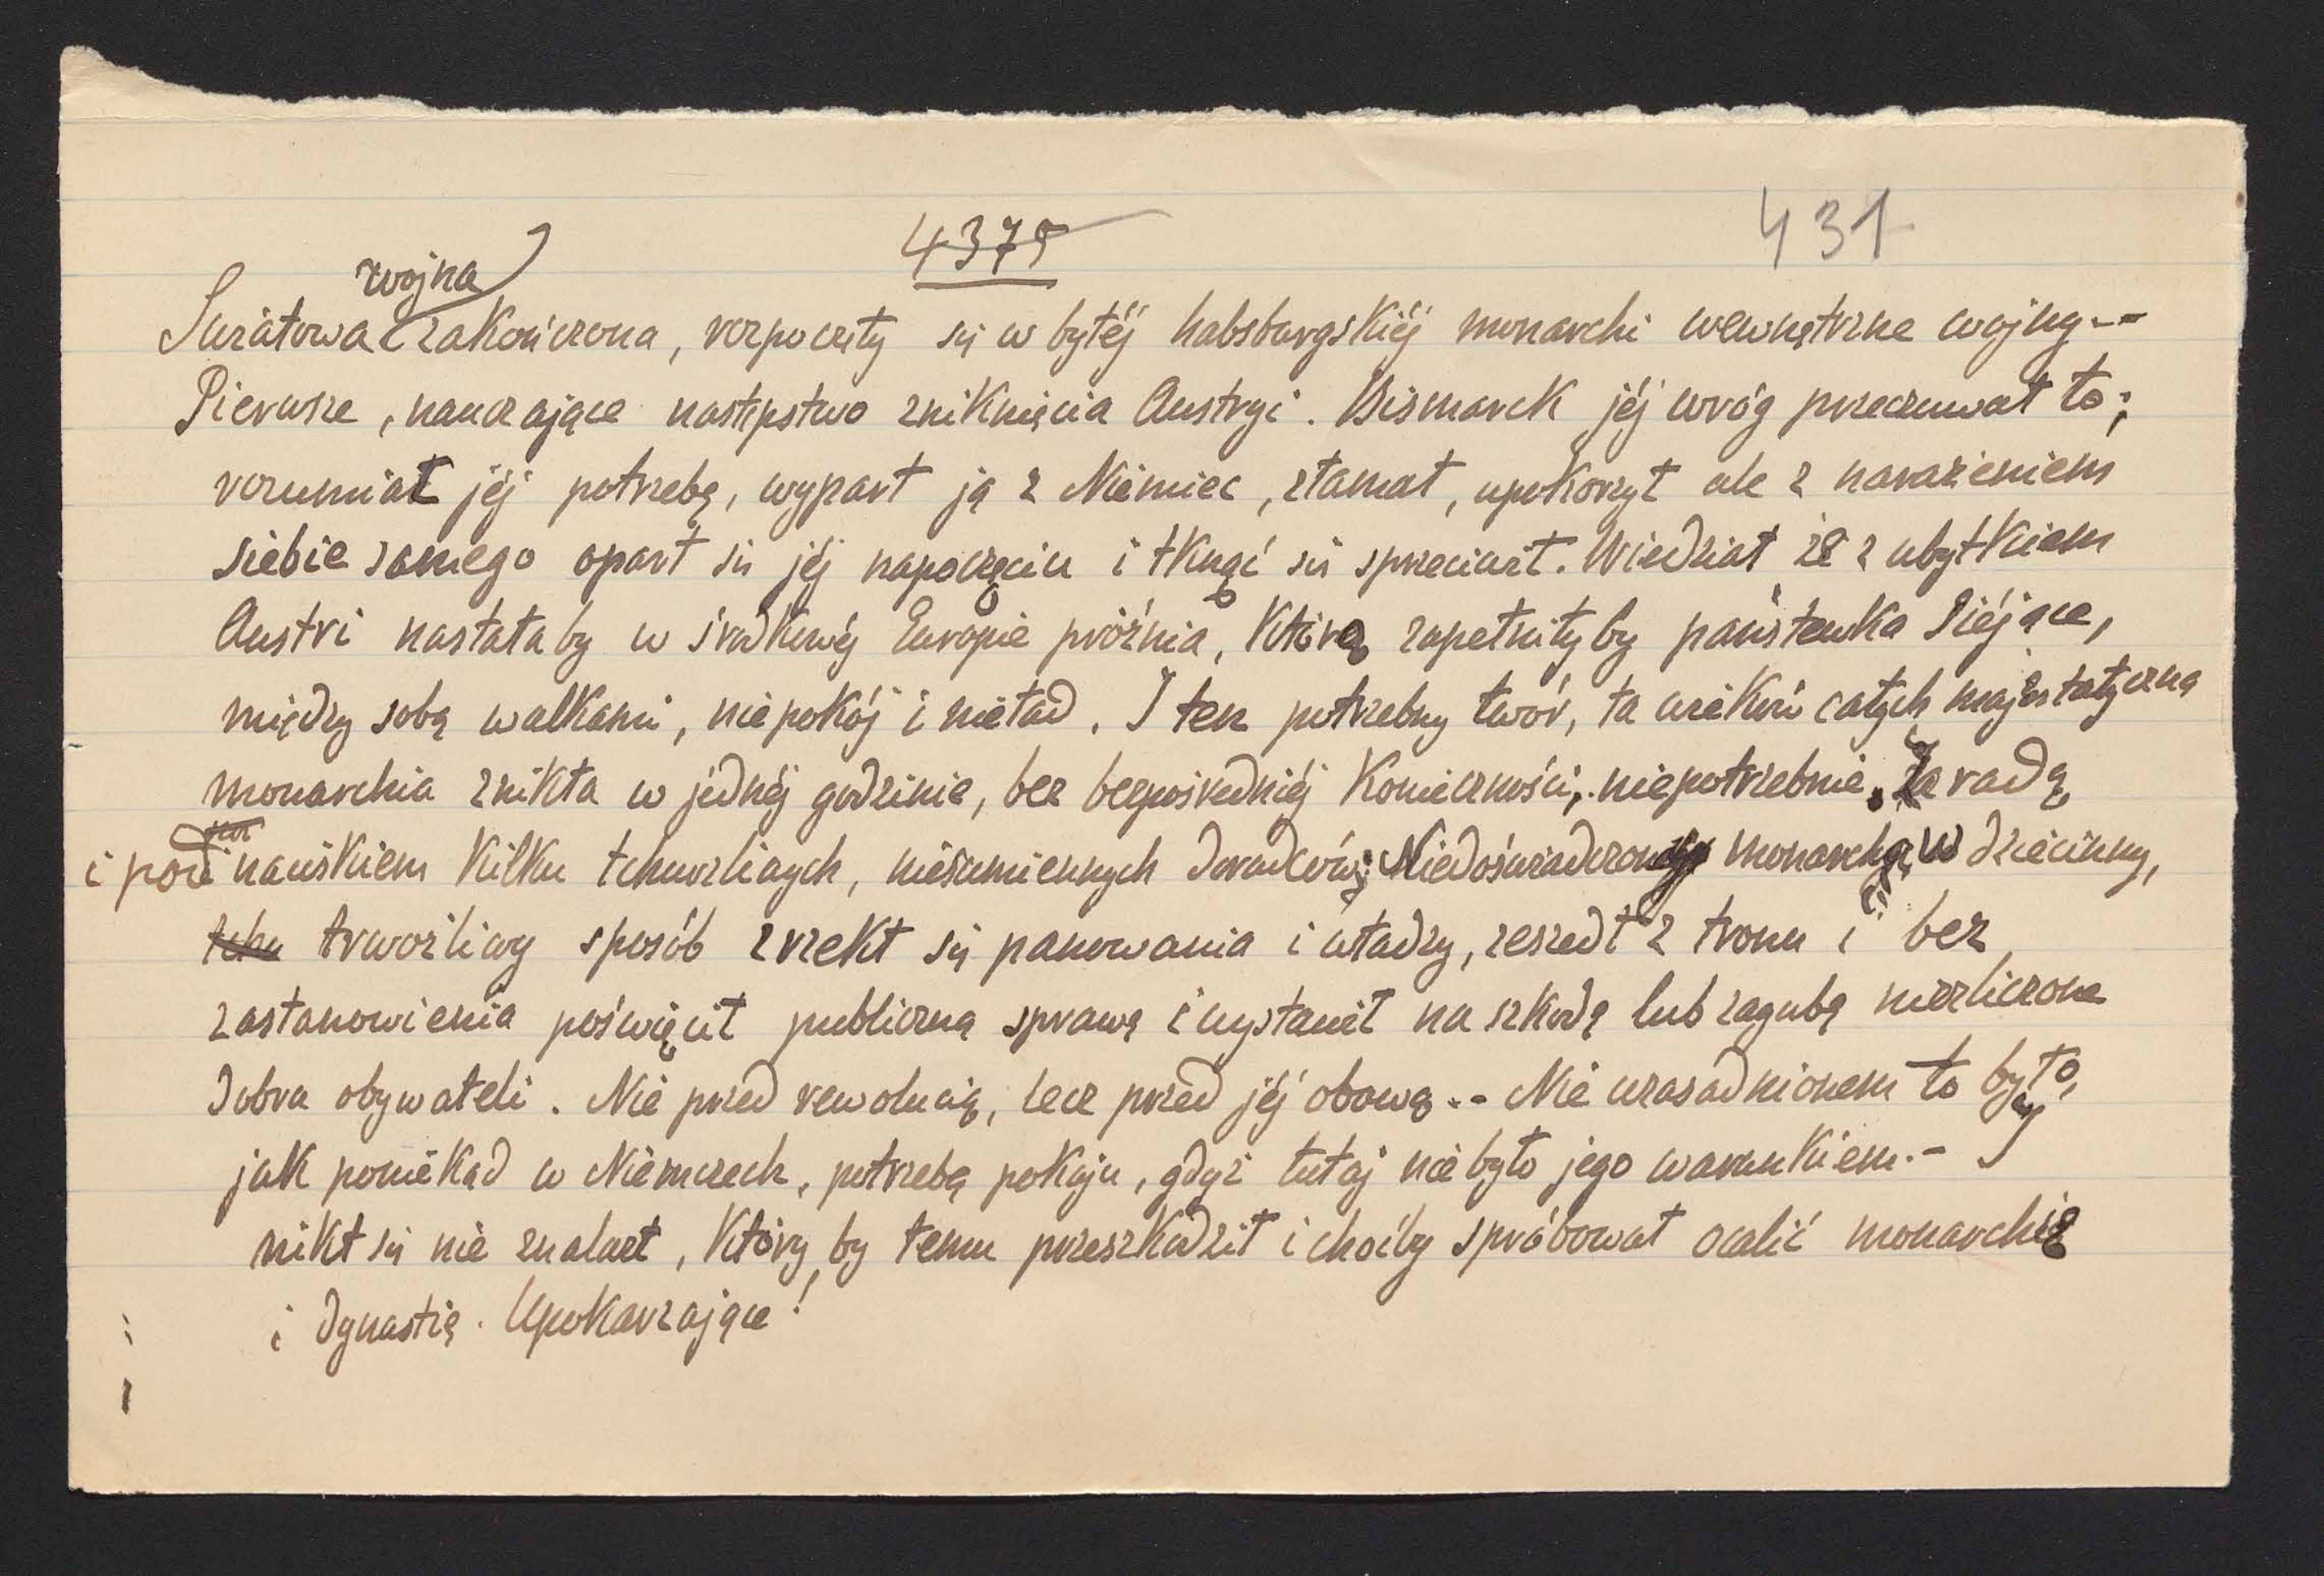 4375
431
wojna
Światowa zakończona, rozpoczęły się w byłéj habsburgskiéj monarchi wewnętrzne wojny --
Pierwsze, nauczające następstwo zniknięcia Austryi. Bismarck jéj wróg przeczuwał to;
rozumiał jéj potrzebę, wyparł ją z Niemiec, złamał, upokorzył ale z narażeniem
siebie samego oparł się jéj napoczęciu i tknąć się sprzeciwił. Wiedział że z ubytkiem
Austri nastałaby w środkowéj Europie próżnia, którą zapełniłyby państewka siejące,
między sobą walkami, niepokój i nieład. I ten potrzebny twór, ta wieków całych majestatyczna
monarchia znikła w jednéj godzinie, bez bezpośredniéj konieczności, niepotrzebnie. Za radą
i pod naciskiem kilku tchurzliwych, niesumiennych doradców; Niedoświadczony monarcha, w dziecinny,
tchu trwożliwy sposób zrzekł się panowania i władzy, zeszedł z tronu i bez
zastanowienia poświęcił publiczną sprawę i wystawił na szkodę lub zagubę niezliczone
dobra obywateli. Nie przed rewolucią, lecz przed jéj obawą -- Nie uzasadnionem to było,
jak poniekąd w Niemczech, potrzebą pokoju, gdyż tutaj nie było jego warunkiem. - I
nikt się nie znalazł, któryby temu przeszkodził i choćby spróbował ocalić monarchię
i dynastię. Upokarzające!